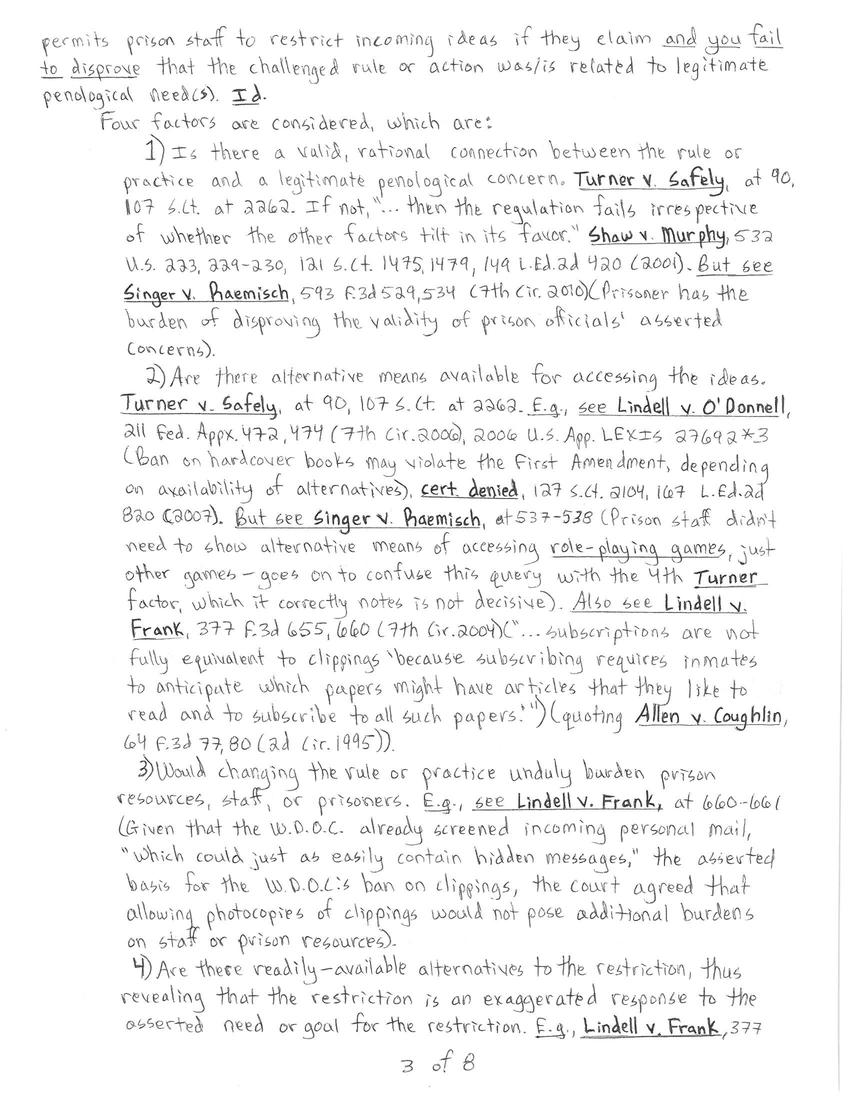 permits prison staff to restrict incoming ideas if they claim and you fail
to disprove that the challenged rule or action was/is related to legitimate
penological need(s). Id.
Four factors are considered, which are:
1) Is there a valid, rational connection between the rule or
practice and a legitimate penological concern. Turner v. Safely, at 90,
107 S.Ct. at 2262. If not, "... then the regulation fails irrespective
of whether the other factors tilt in its favor." Shaw v. Murphy, 532
U.S. 223, 229-230, 121 S.Ct. 1475, 1479, 149 L.Ed.2d 420 (2001). But see
Singer v. Raemisch, 593 F.3d 529, 534 (7th Cir. 2010) (Prisoner has the
burden of disproving the validity of prison officials' asserted
concerns).
2) Are there alternative means available for accessing the ideas.
Turner v. Safely, at 90, 107 S.Ct. at 2262. E.g., see Lindell v. O'Donnell,
211 Fed. Appx. 472, 474 (7th Cir. 2006), 2006 U.S. App. LEXIS 27692 *3
(Ban on hardcover books may violate the First Amendment, depending
on availability of alternatives), cert. denied, 127 S.Ct. 2104, 167 L.Ed.2d
820 (2007). But see Singer v. Raemisch, at 537-538 (Prison staff didn't
need to show alternative means of accessing role-playing games, just
other games - goes on to confuse this query with the 4th Turner
factor, which it correctly notes is not decisive). Also see Lindell v.
Frank, 377 F.3d 655, 660 (7th Cir. 2004) ("... subscriptions are not
fully equivalent to clippings 'because subscribing requires inmates
to anticipate which papers might have articles that they like to
read and to subscribe to all such papers.'") (quoting Allen v. Coughlin,
64 F.3d 77, 80 (2d Cir. 1995)).
3) Would changing the rule or practice unduly burden prison
resources, staff, or prisoners. E.g., see Lindell v. Frank, at 660-661
(Given that the W.D.O.C. already screened incoming personal mail,
"which could just as easily contain hidden messages," the asserted
basis for the W.D.O.C.'s ban on clippings, the court agreed that
allowing photocopies of clippings would not pose additional burdens
on staff or prison resources).
4) Are there readily-available alternatives to the restriction, thus
revealing that the restriction is an exaggerated response to the
asserted need or goal for the restriction. E.g., Lindell v. Frank, 377
3 of 8